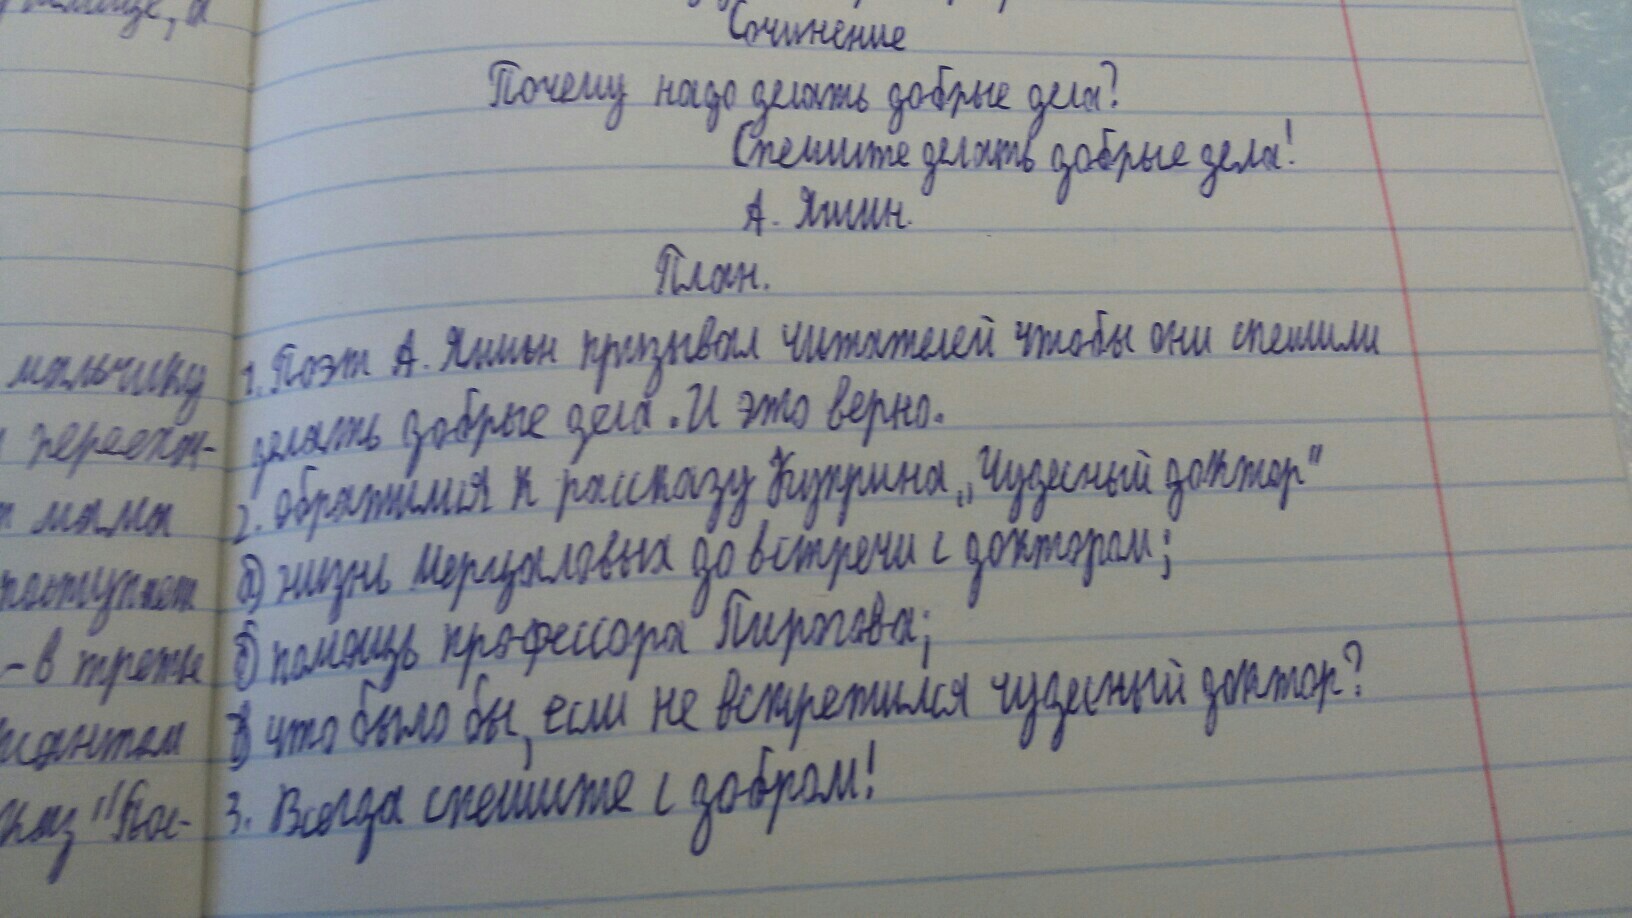 Сочинение
Почему надо делать добрые дела?
Спешите делать добрые дела!
А. Яшин.
План.
1. Поэт А. Яшин призывал читателей чтобы они спешили
делать добрые дела. И это верно.
2. Обратимся к рассказу Куприна „Чудесный доктор"
а) жизнь Мерцаловых до встречи с доктором;
б) помощь профессора Пирогова;
в) что было бы, если не встретился чудесный доктор?
3. Всегда спешите с добром!
мальчику
мама
поступает
- в третье